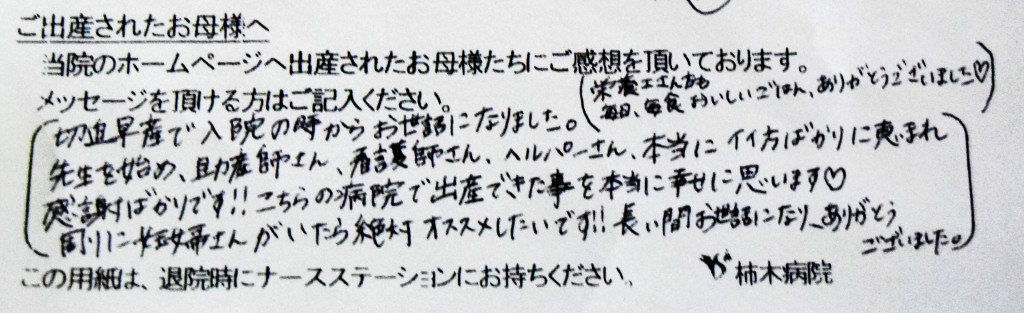 ご出産されたお母様へ
当院のホームページへ出産されたお母様たちにご感想を頂いております。
メッセージを頂ける方はご記入ください。
(栄養士さん方も
毎日、毎食おいしいごはん、ありがとうございました♡)
切迫早産で入院の時からお世話になりました。
先生を始め、助産師さん、看護師さん、ヘルパーさん、本当にイイ方ばかりに恵まれ
感謝ばかりです!!こちらの病院で出産できた事を本当に幸せに思います♡
周りに妊婦さんがいたら絶対オススメしたいです!!長い間お世話になり、ありがとう
ございました。
この用紙は、退院時にナースステーションにお持ちください。
柿木病院